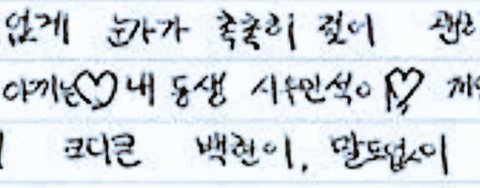 없게 눈가가 축축히 젖어
야끼는♡ 내 동생 시우민석이♡
코디큰 백현이, 말도없이